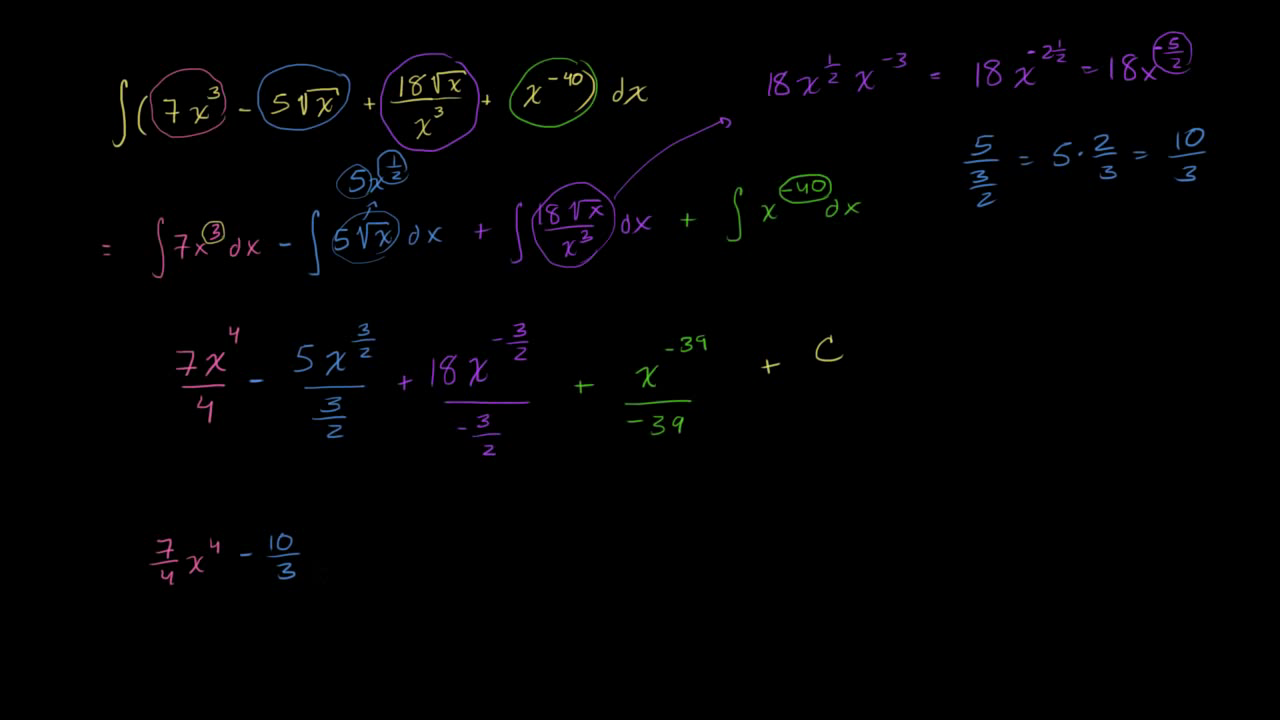 ∫(7x³ - 5√x + 18√x/x³ + x⁻⁴⁰) dx
18x^(1/2) x^(-3) = 18x^(-2 1/2) = 18x^(-5/2)
5/(3/2) = 5 · 2/3 = 10/3
5x^(1/2)
= ∫7x³dx - ∫5√x dx + ∫18√x/x³ dx + ∫x⁻⁴⁰dx
7x⁴/4 - 5x^(3/2)/(3/2) + 18x^(-3/2)/(-3/2) + x⁻³⁹/-39 + C
7/4 x⁴ - 10/3